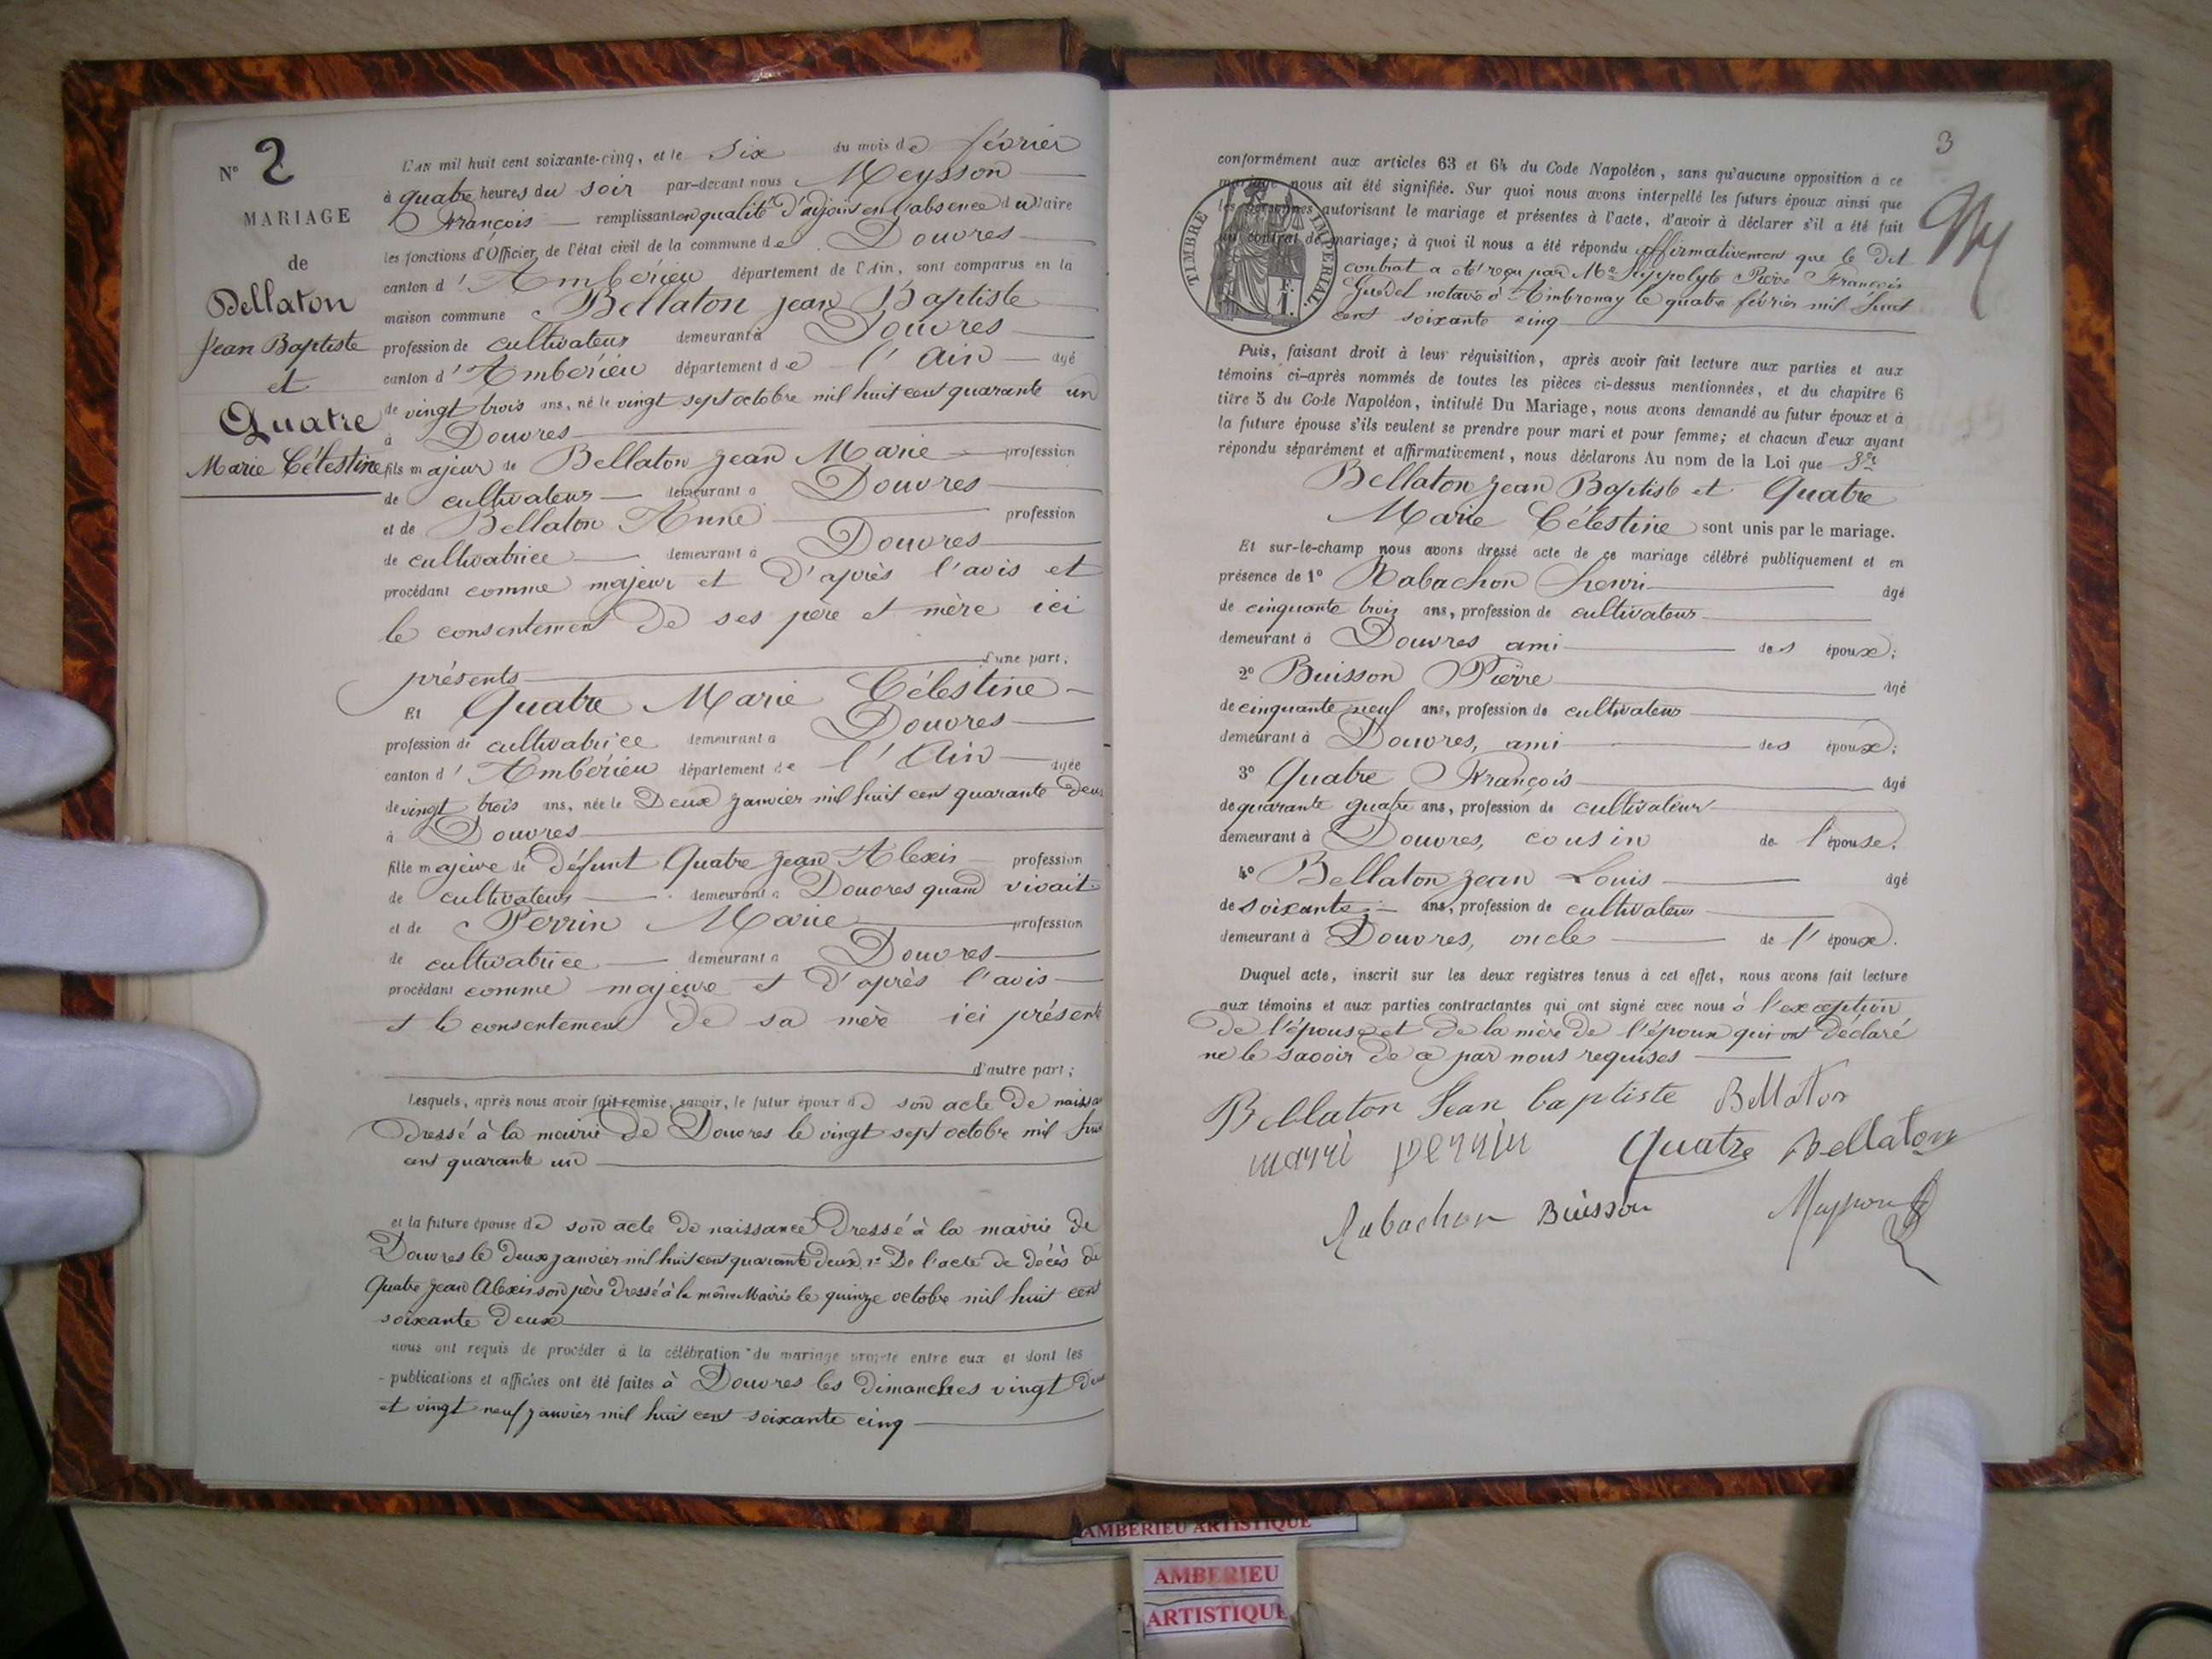 N° 2
MARIAGE
de
Bellaton
Jean Baptiste
et
Quatre
Marie Célestine
L'AN mil huit cent soixante-cinq, et le Six du mois de février
à quatre heures du soir par-devant nous Meysson
François remplissant en qualité d'adjoint en l'absence du Maire
les fonctions d'Officier de l'état civil de la commune de Douvres
canton d'Ambérieu département de l'Ain, sont comparus en la
maison commune Bellaton Jean Baptiste
profession de cultivateur demeurant à Douvres
canton d'Ambérieu département de l'Ain agé
de vingt trois ans, né le vingt sept octobre mil huit cent quarante un
à Douvres
fils majeur de Bellaton Jean Marie profession
de cultivateur demeurant à Douvres
et de Bellaton Anne profession
de cultivatrice demeurant à Douvres
procédant comme majeur et d'après l'avis et
le consentement de ses père et mère ici
présents d'une part;
Et Quatre Marie Célestine
profession de cultivatrice demeurant à Douvres
canton d'Ambérieu département de l'Ain agée
de vingt trois ans, née le Deux janvier mil huit cent quarante deux
à Douvres
fille majeure de défunt Quatre Jean Alexis profession
de cultivateur demeurant à Douvres quand vivait
et de Perrin Marie profession
de cultivatrice demeurant à Douvres
procédant comme majeure et d'après l'avis
et le consentement de sa mère ici présente
d'autre part;
Lesquels, après nous avoir fait remise, savoir, le futur époux de son acte de naissa
dressé à la mairie de Douvres le vingt sept octobre mil huit
cent quarante un
et la future épouse de son acte de naissance dressé à la mairie de
Douvres le deux janvier mil huit cent quarante deux, De l'acte de décès de
Quatre Jean Alexis son père dressé à la même Mairie le quinze octobre mil huit cent
soixante deux
nous ont requis de procéder à la célébration du mariage projeté entre eux et dont les
publications et affiches ont été faites à Douvres les dimanches vingt deux
et vingt neuf janvier mil huit cent soixante cinq
3
conformément aux articles 63 et 64 du Code Napoléon, sans qu'aucune opposition à ce
mariage nous ait été signifiée. Sur quoi nous avons interpellé les futurs époux ainsi que
les personnes autorisant le mariage et présentes à l'acte, d'avoir à déclarer s'il a été fait
un contrat de mariage; à quoi il nous a été répondu affirmativement que le dit
contrat a été reçu par Me Hippolyte Pierre François
notaire à Ambronay le quatre février mil huit
cent soixante cinq
TIMBRE IMPÉRIAL
Puis, faisant droit à leur réquisition, après avoir fait lecture aux parties et aux
témoins ci-après nommés de toutes les pièces ci-dessus mentionnées, et du chapitre 6
titre 5 du Code Napoléon, intitulé Du Mariage, nous avons demandé au futur époux et à
la future épouse s'ils veulent se prendre pour mari et pour femme; et chacun d'eux ayant
répondu séparément et affirmativement, nous déclarons Au nom de la Loi que
Bellaton Jean Baptiste et Quatre
Marie Célestine sont unis par le mariage.
Et sur-le-champ nous avons dressé acte de ce mariage célébré publiquement et en
présence de 1° Rabachon henri agé
de cinquante trois ans, profession de cultivateur
demeurant à Douvres ami des époux;
2° Buisson Pierre agé
de cinquante neuf ans, profession de cultivateur
demeurant à Douvres, ami des époux;
3° Quatre François agé
de quarante quatre ans, profession de cultivateur
demeurant à Douvres, cousin de l'épouse.
4° Bellaton Jean Louis agé
de soixante ans, profession de cultivateur
demeurant à Douvres, oncle de l'époux.
Duquel acte, inscrit sur les deux registres tenus à cet effet, nous avons fait lecture
aux témoins et aux parties contractantes qui ont signé avec nous à l'exception
de l'épouse et de la mère de l'époux qui ont déclaré
ne le savoir de ce par nous requises
Bellaton Jean baptiste Bellaton
marri perrin Quatre Bellaton
Rabachon Buisson Meysson
AMBERIEU ARTISTIQUE
AMBERIEU
ARTISTIQUE